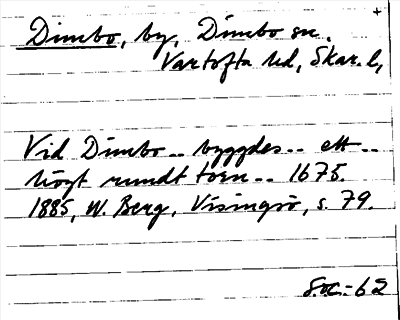 Dimbo, by, Dimbo sn.
Vartofta hd, Skar. l,
Vid Dimbo .. byggdes .. ett ..
högt rundt torn .. 1675.
1885, W. Berg, Visingsö, s. 79.